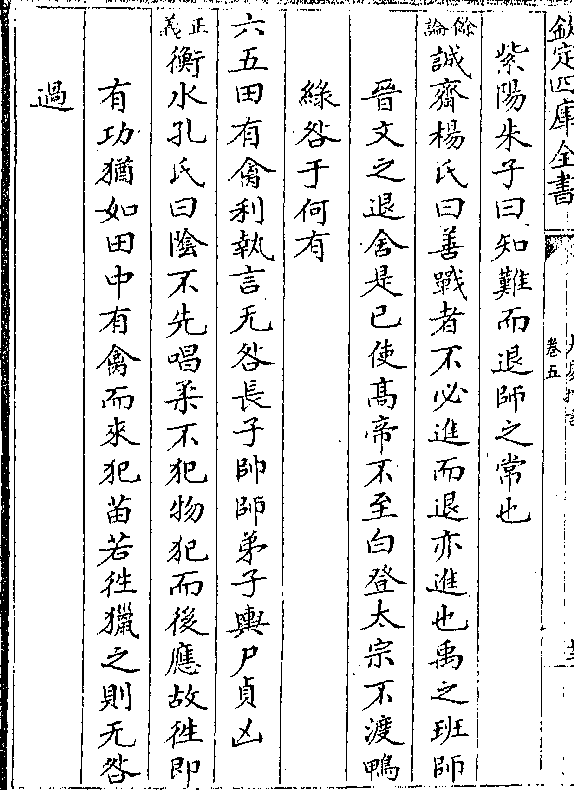 欽定四庫全書
卷五
紫陽朱子曰知難而退師之常也
餘論誠齋楊氏曰善戰者不必進而退亦進也禹之班師
晉文之退舍是已使高帝不至白登太宗不渡鴨
綠咎于何有
六五田有禽利執言无咎長子帥師弟子輿尸貞凶
正義衡水孔氏曰陰不先唱柔不犯物犯而後應故徃即
有功猶如田中有禽而來犯苗若徃獵之則无咎
過